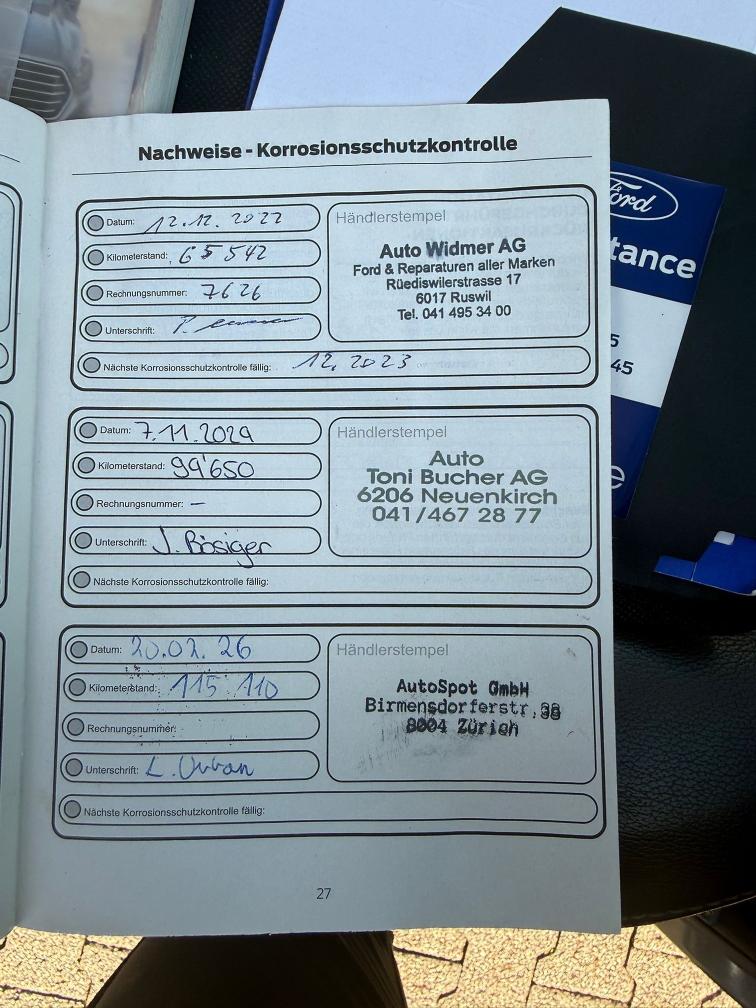 Nachweise - Korrosionsschutzkontrolle
Datum: 12.12.2022
Kilometerstand: 65542
Rechnungsnummer: 7626
Unterschrift:
Händlerstempel
Auto Widmer AG
Ford & Reparaturen aller Marken
Rüediswilerstrasse 17
6017 Ruswil
Tel. 041 495 34 00
Nächste Korrosionsschutzkontrolle fällig: 12.2023
Datum: 7.11.2024
Kilometerstand: 99'650
Rechnungsnummer: –
Unterschrift: J. Bösiger
Händlerstempel
Auto
Toni Bucher AG
6206 Neuenkirch
041/467 28 77
Nächste Korrosionsschutzkontrolle fällig:
Datum: 20.02.26
Kilometerstand: 115'110
Rechnungsnummer:
Unterschrift: L. Urban
Händlerstempel
AutoSpot GmbH
Birmensdorferstr.
8004 Zürich
Nächste Korrosionsschutzkontrolle fällig:
27
Ford
tance
5
45
e